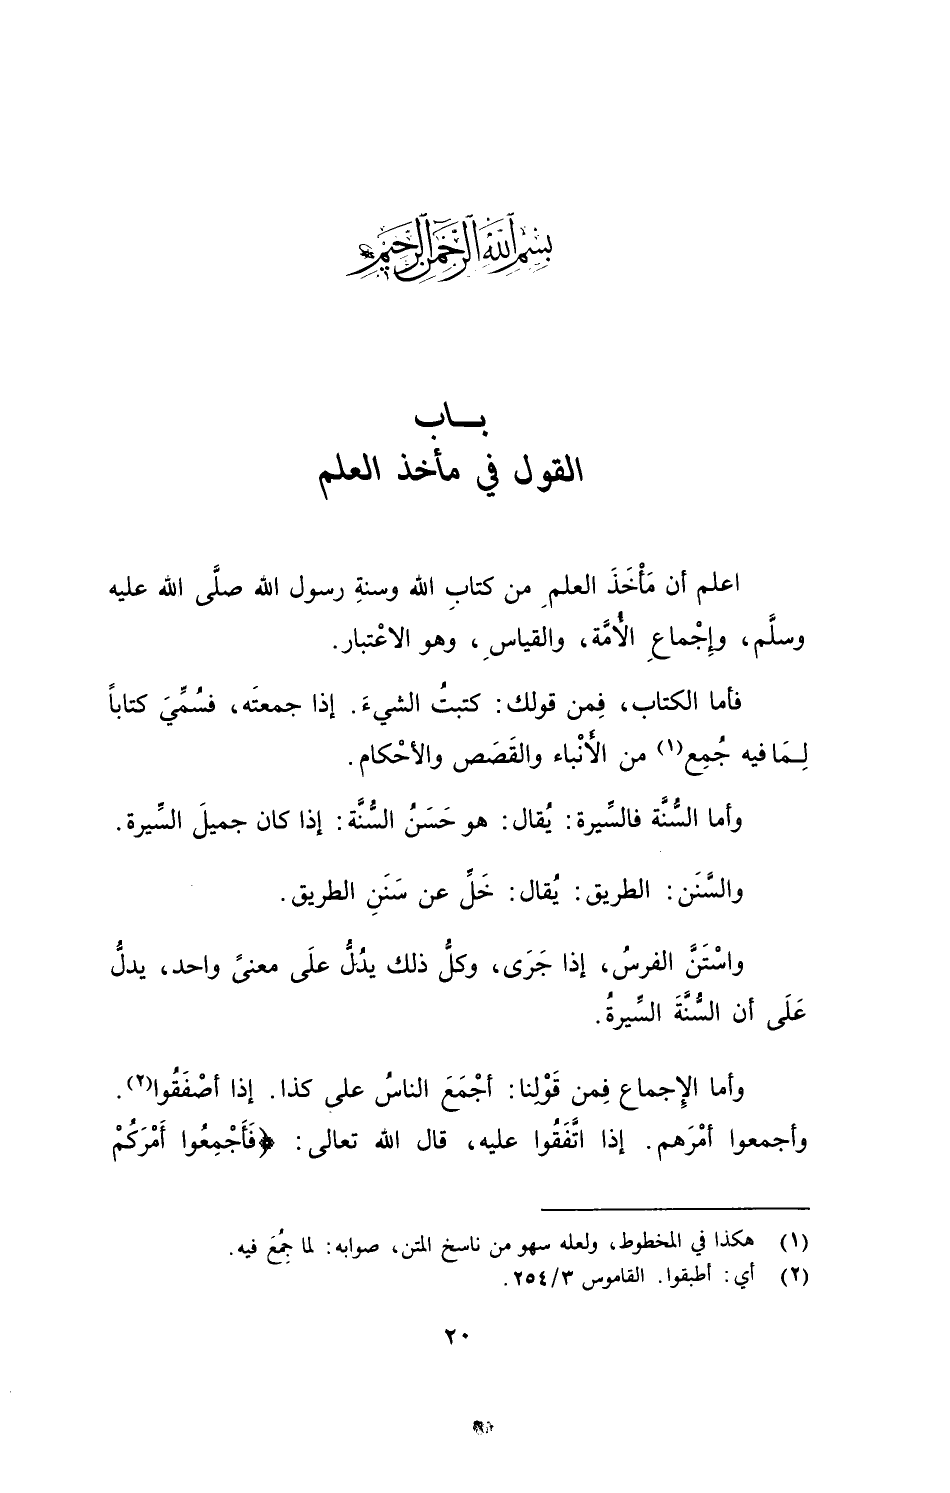 بسم الله الرحمن الرحيم
بـــاب
القول في مأخذ العلم
اعلم أن مَأْخَذَ العلمِ من كتابِ الله وسنةِ رسول الله صلَّى الله عليه
وسلَّم، وإِجْماعِ الأُمَّة، والقياسِ، وهو الاعْتبار.
فأما الكتاب، فِمن قولك: كتبتُ الشيءَ. إذا جمعتَه، فسُمِّيَ كتاباً
لِـمَا فيه جُمِع(١) من الأَنْباء والقَصَص والأحْكام.
وأما السُّنَّة فالسِّيرة: يُقال: هو حَسَنُ السُّنَّة: إذا كان جميلَ السِّيرة.
والسَّنَن: الطريق: يُقال: خَلِّ عن سَنَنِ الطريق.
واسْتَنَّ الفرسُ، إذا جَرَى، وكلُّ ذلك يدُلُّ علَى معنىً واحد، يدلُّ
عَلَى أن السُّنَّةَ السِّيرةُ.
وأما الإِجماع فِمن قَوْلِنا: أجْمَعَ الناسُ على كذا. إذا أصْفَقُوا(٢).
وأجمعوا أمْرَهم. إذا اتَّفَقُوا عليه، قال الله تعالى: ﴿فَأَجْمِعُوا أَمْرَكُمْ
(١) هكذا في المخطوط، ولعله سهو من ناسخ المتن، صوابه: لما جُمِعَ فيه.
(٢) أي: أطبقوا. القاموس ٢٥٤/٣.
٢٠